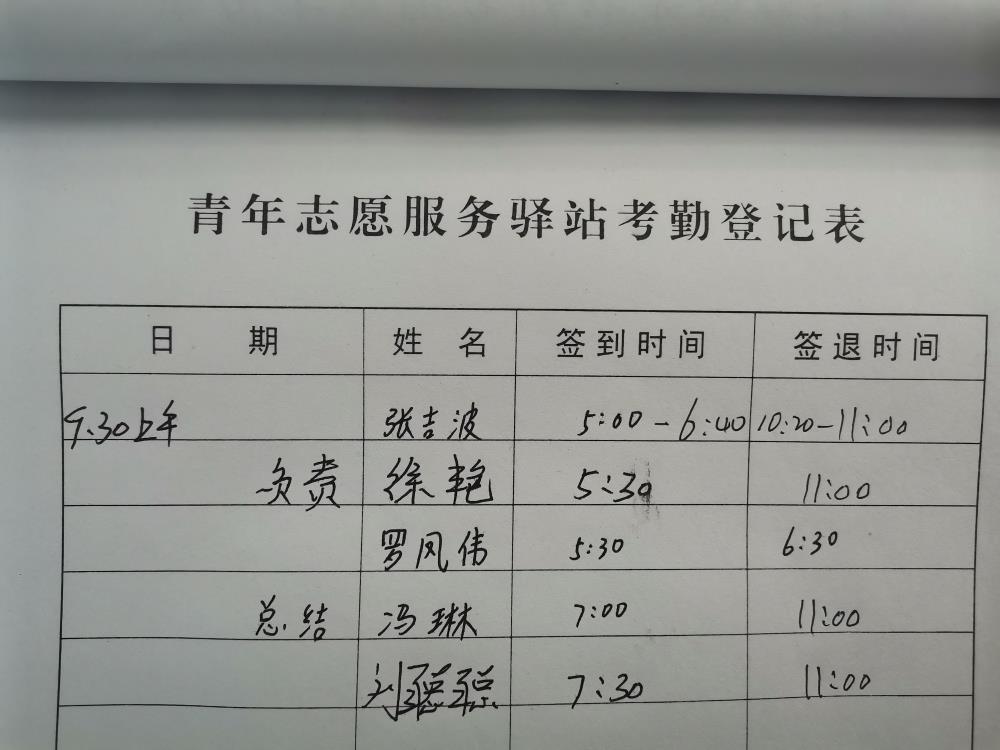 青年志愿服务驿站考勤登记表
日 期 姓 名 签到时间 签退时间
9.30上午 张吉波 5:00-6:40 10:20-11:00
负责 徐艳 5:30 11:00
罗凤伟 5:30 6:30
总结 冯琳 7:00 11:00
刘聪聪 7:30 11:00